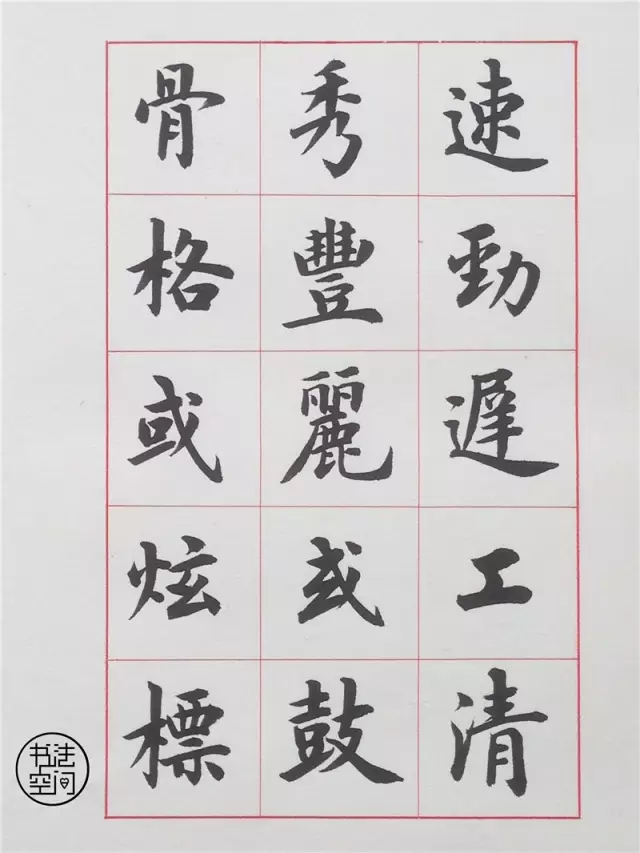 速勁遲工清
秀豐麗或鼓
骨格或炫標
书法空间